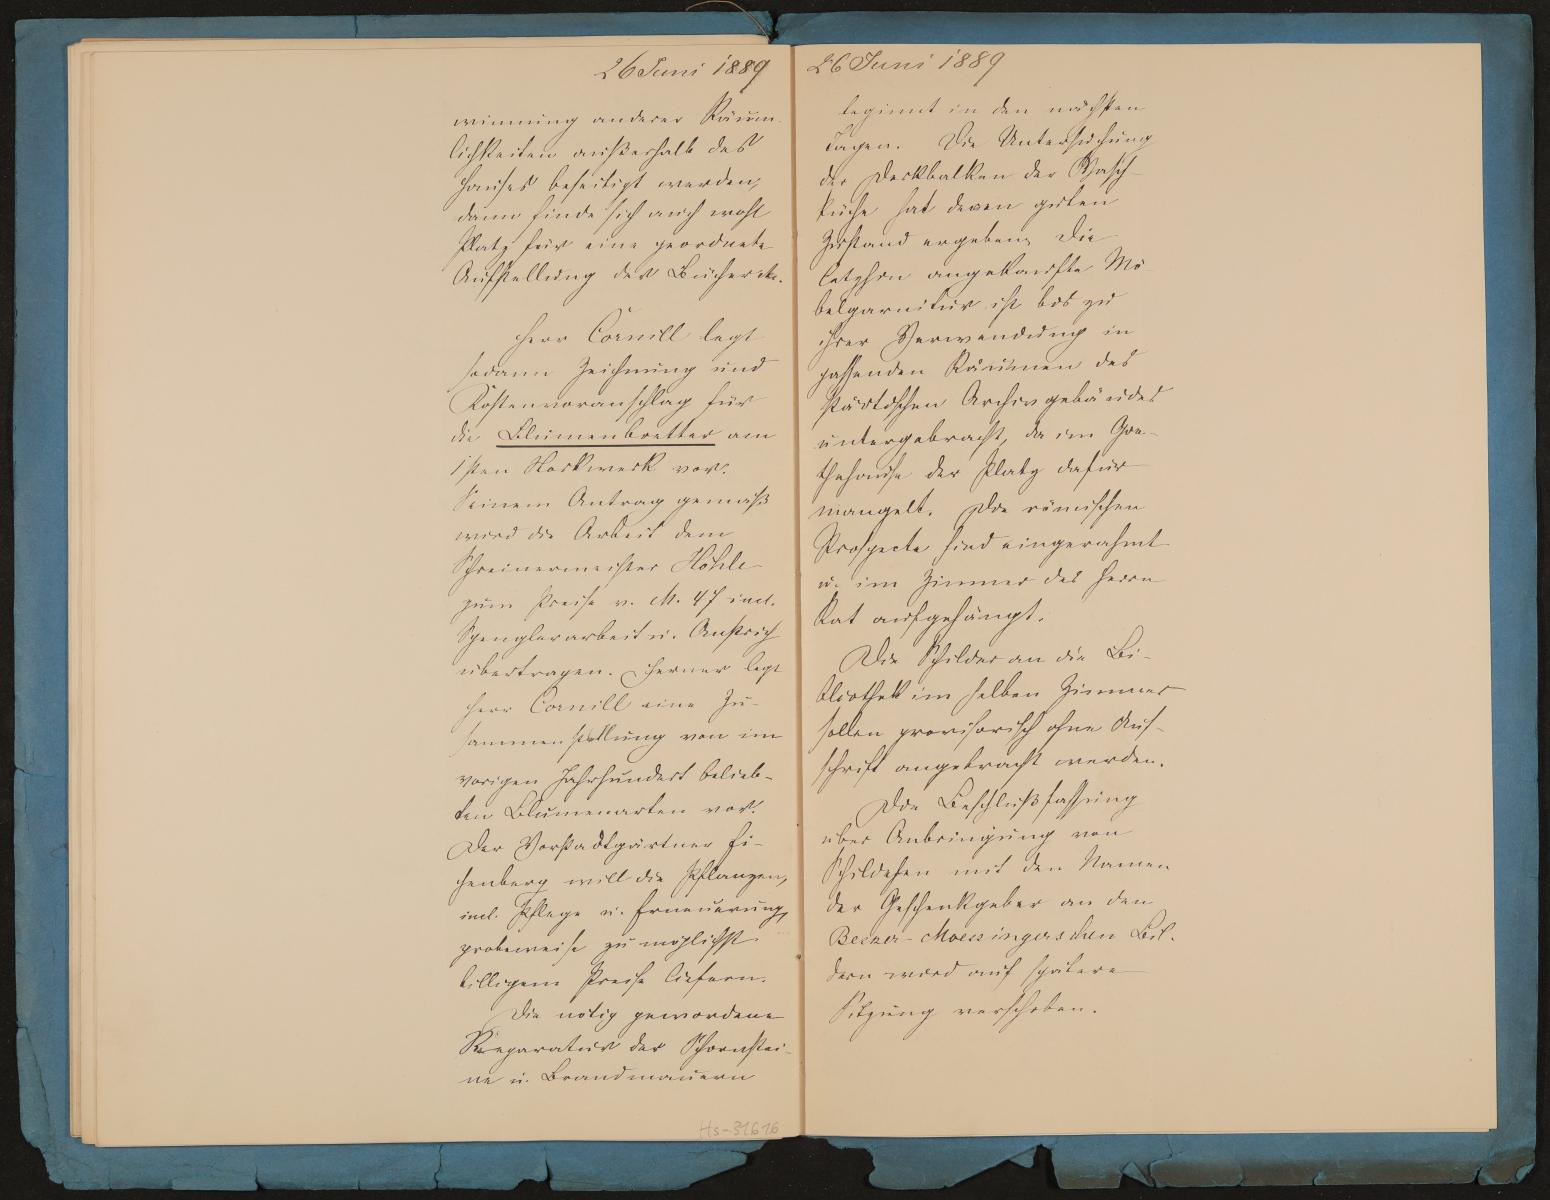 26 Juni 1889
winnung anderer Räum-
lichkeiten außerhalb des
Hauses beseitigt werden,
dann finde sich auch wohl
Platz für eine geordnete
Aufstellung der Bücher etc.
Herr Cornill legt
sodann Zeichnung und
Kostenvoranschlag für
die Blumenbretter am
1sten Stockwerk vor.
Seinem Antrag gemäß
wird die Arbeit dem
Schreinermeister Höhle
zum Preise v. M. 47 incl.
Spenglerarbeit u. Anstrich
übertragen. Ferner legt
Herr Cornill eine Zu-
sammenstellung von im
vorigen Jahrhundert belieb-
ten Blumenarten vor.
Der Vorstadtgärtner Ei-
chenberg will die Pflanzen,
incl. Pflege u. Erneuerung,
probeweise zu möglichst
billigem Preise liefern.
Die nötig gewordene
Reparatur der Schornstei-
ne u. Brandmauern
Hs-31616
26 Juni 1889
beginnt in den nächsten
Tagen. Die Untersuchung
der Deckbalken der Wasch-
küche hat deren guten
Zustand ergeben. Die
letzthin angekaufte Mö-
belgarnitur ist bis zu
ihrer Verwendung in
passenden Räumen des
städtischen Archivgebäudes
untergebracht, da im Goe-
thehause der Platz dafür
mangelt. Die römischen
Prospecte sind eingerahmt
u. im Zimmer des Herrn
Rat aufgehängt.
Die Schilder an die Bi-
bliothek im selben Zimmer
sollen provisorisch ohne Auf-
schrift angebracht werden.
Die Beschlußfassung
über Anbringung von
Schildchen mit den Namen
der Geschenkgeber an den
Becker-Moessingerschen Bil-
dern wird auf spätere
Sitzung verschoben.